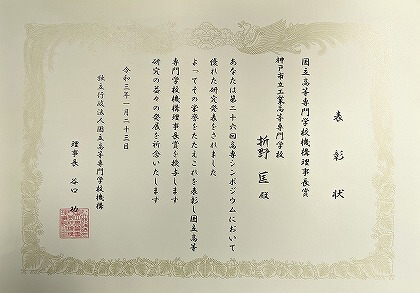 表彰状
国立高等専門学校機構理事長賞
神戸市立工業高等専門学校
折野 匡 殿
あなたは第二十六回高専シンポジウムにおいて
優れた研究発表をされました
よってその栄誉をたたえこれを表彰し国立高等
専門学校機構理事長賞を授与します
研究の益々の発展を祈念いたします
令和三年一月二十三日
独立行政法人国立高等専門学校機構
理事長 谷口 功